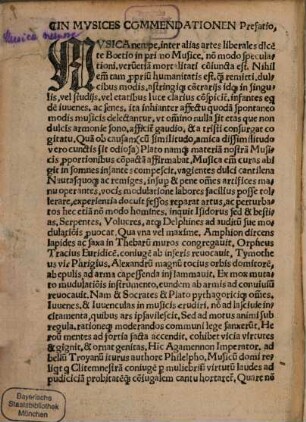 ¶IN MVSICES COMMENDATIONEN Prefatio,
MVSICA nempe, inter alias artes liberales dicẽ
te Boetio in primo Musice, nõ modo specula
tioni, verũetiã moralitati cõiuncta est. Nihil
em̃ tam ꝓpriũ humanitatis est, q̃ remitti, dul
cibus modis, astringiq; cõtrarijs idq; in singu
lis, vel studijs, vel etatibus luce clarius cõspicit̃, infantes eq
de iuuenes, ac senes, ita
modis musicis delectantur, vt om̃ino nulla sit etas que non
dulcis armonie sono, afficit̃ gaudio, & a tristi consurgat co
gitatu, Quã ob causam (cũ similitudo, amica dissimilitudo
vero cunctis sit odiosa) Plato nam
sica ꝓportionibus cõpactã affirmabat, Musica em̃ curas abi
git in somnes infantes compescit, vagientes dulci cantilena
Nautasquoq; ac remiges, insup & pene om̃es artifices ma
nu operantes, vocis modulatione labores facilius posse tol
lerare, experientia docuit fessos reparat artus, ac perturba
tos hec etiã nõ modo homines, inquit Isidorus sed & bestias
as, Serpentes, Volucres, acq; Delphines ad auditũ sue mo
dulatiõis ꝓuocat. Qua vna vel maxime, Amphion dircens
lapides ac saxa in Thebarũ muros congregauit, Orpheus
Tracius Euridicẽ. coniugẽ ab inferis reuocauit, Tymothe
us vir Phrigius, Alexandrũ magnũ torcus orbis domitorẽ,
ab epulis ad arma capessenda inflammauit, Ex mox mutato
modulatiõis instrumento, eundem ab armis ad conuiuiũ
reuocauit. Nam & Socrates & Plato pythagoriciq; om̃es,
Iuuenes, & Iuuenculas in musicis erudiri, nõ ad lasciuie in
citamenta, quibus ars ipsavilescit, Sed ad motus animi sub
regula, rationeq; moderandos communi lege sanxerũt, He
roũ mentes ad fortia facta accendit, cohibet vicia virtutes
& gignit, & ornat genitas, Hic Agamennon Imperator, ad
bellũ Troyanũ iturus authore Philelpho, Musicũ domi reli
qt q Clitemnestrã coniugẽ ꝑ muliebriũ virtutũ laudes ad
pudiciciã probitatẽq; cõiugalem cantu hortaret̃. Quare nõ
Bayerische
Staatsbibliothek
München